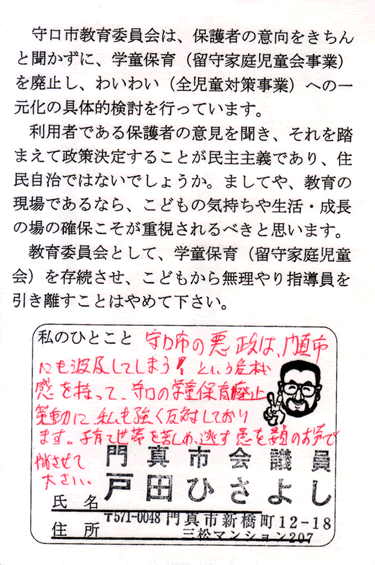 守口市教育委員会は、保護者の意向をきちん
と聞かずに、学童保育（留守家庭児童会事業）
を廃止し、わいわい（全児童対策事業）への一
元化の具体的検討を行っています。
利用者である保護者の意見を聞き、それを踏
まえて政策決定することが民主主義であり、住
民自治ではないでしょうか。ましてや、教育の
現場であるなら、こどもの気持ちや生活・成長
の場の確保こそが重視されるべきと思います。
教育委員会として、学童保育（留守家庭児童
会）を存続させ、こどもから無理やり指導員を
引き離すことはやめて下さい。
私のひとこと 守口市の悪政は、門真市
にも波及してしまう！という危機
感を持って、守口の学童保育廃止
策動に私も強く反対しており
ます。子育て世帯を苦しめ、逃す悪を
させて
下さい。
門真市会議員
氏名 戸田ひさよし
住所 〒571-0048 門真市新橋町12-18
三松マンション207